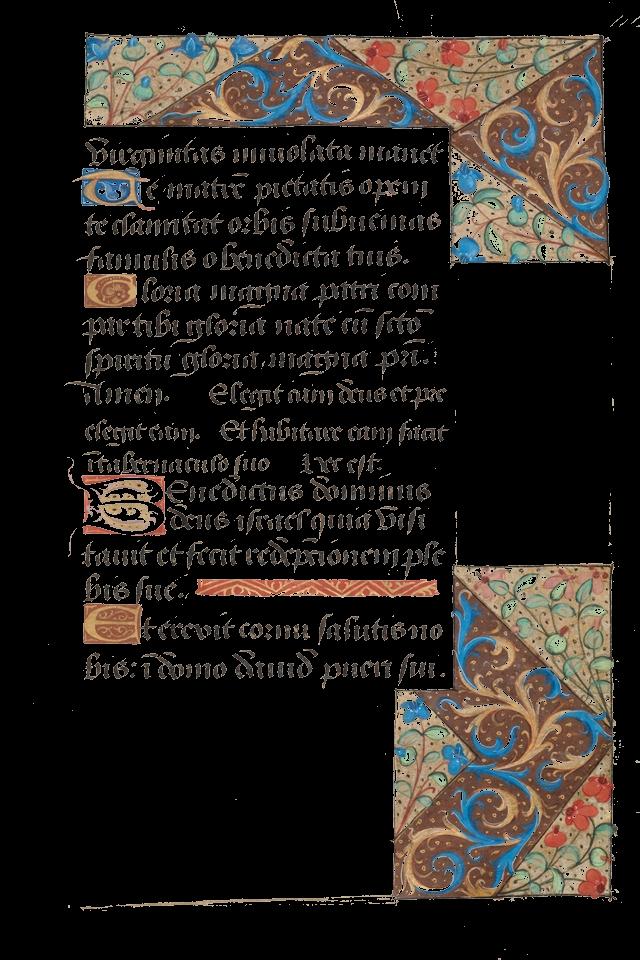 Virginitas inviolata manet
Te matrē pietatis opem
te clamitat orbis subvenias
famulis o benedicta tuis.
Gloria magna patri com
par tibi gloria nate cū scto
spiritu gloria magna pri.
Amen. Elegit eam deus et pre
elegit eam. Et habitare eam facit
ītabernaculo suo
Benedictus dominus
deus israel quia visi
tavit et fecit redēptionem ple
bis sue.
Et erexit cornu salutis no
bis: ī domo david pueri sui.